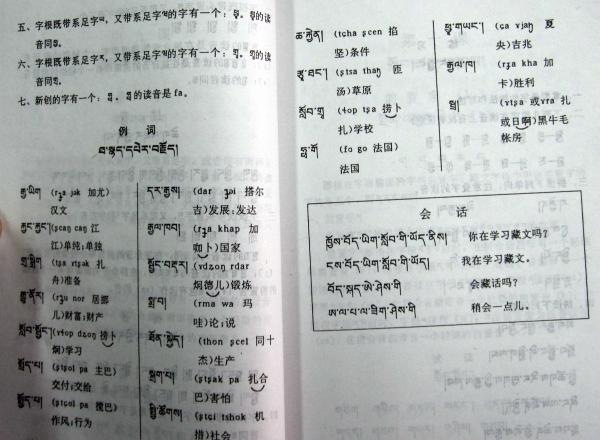 五、字根既带系足字ྱ，又带系足字ྲ的字有一个：的读
音同
六、字根既带系足字ར，又带系足字的字有一个：的读
音同
七、新创的字有一个：ཧྥ，ཧྥ的读音是fa。
例 词
རྒྱ་ཡིག (rɟa jək 加尤)
汉文
རྐྱང་རྐྱང་ (ʂcaŋ caŋ 江
江)单纯；单独
གྲ་སྒྲིག (tʂa rtʂək 扎
舟)准备
རྒྱུ་ནོར་ (rɟu nor 居那
儿)财富；财产
སློབ་སྦྱོང་ (ɬop dzoŋ 捞卜
炯)学习
སྤྲོད་པ། (ʂtʂol pa 主巴)
交付；交给
སྤྱོད་པ། (ʂtɕol pa 搅巴)
作风；行为
དར་རྒྱས། (dar ɟəi 搭尔
吉)发展；发达
རྒྱལ་ཁབ། (rɟa khap 加
咖卜)国家
སྦྱོང་བརྡར། (vdzoŋ rdar
炯德儿)锻炼
སྨྲ་བ། (rma wa 玛
哇)论；说
ཐོན་སྐྱེད། (thon ʂcel 同十
杰)生产
སྐྲག་པ། (ʂtʂak pa 扎合
巴)害怕
སྤྱི་ཚོགས། (ʂtɕi tshok 机
措)社会
ཆ་རྐྱེན། (tɕha ʂcen 掐
坚)条件
རྩྭ་ཐང་། (ʂtsa thaŋ 匝
汤)草原
སློབ་གྲྭ (ɬop tʂa 捞卜
扎)学校
ཧྥ་གོ (fa go 法国)
法国
ཕྱྭ་གཡང་། (ɕa vjaŋ 夏
央)吉兆
རྒྱལ་ཁ། (rɟa kha 加
卡)胜利
སྦྲ། (vtʂa 或vra 扎
或日啊)黑牛毛
帐房
会 话
ཁྱོས་བོད་ཡིག་སློབ་གི་ཡོད་ནིས། 你在学习藏文吗？
ངས་བོད་ཡིག་སློབ་གི་ཡོད། 我在学习藏文。
བོད་སྐད་ཨེ་ཤེས་གི 会藏话吗？
ཨ་ལ་པ་ལ་ཟིག་ཤེས་གི 稍会一点儿。